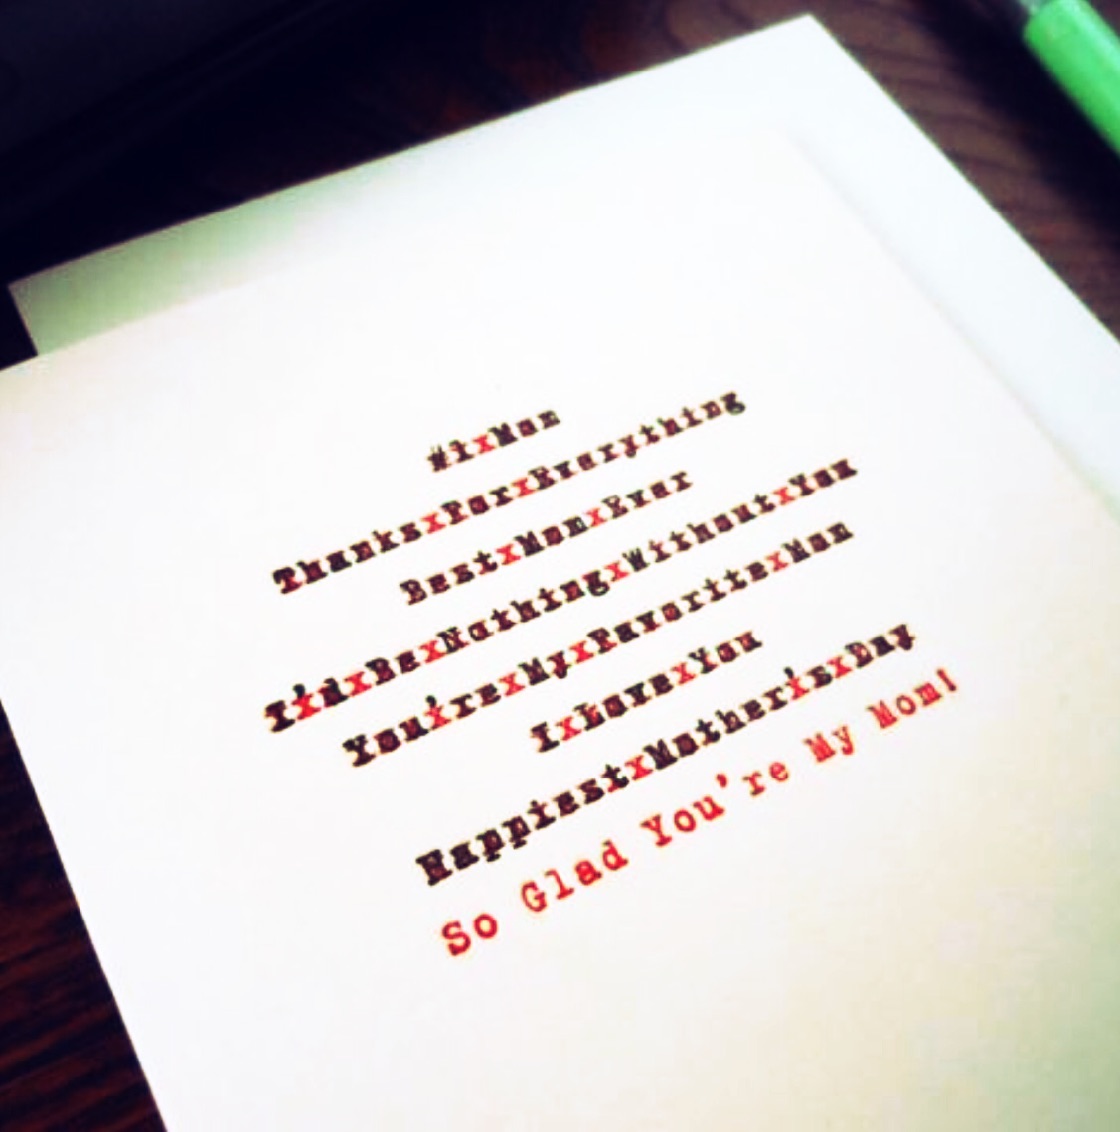 #1xMom
ThanksxForxEverything
BestxMomxEver
I'dxBexNothingxWithoutxYou
You'rexMyxFavoritexMom
IxLovexYou
HappiestxMother'sxDay
So Glad You're My Mom!